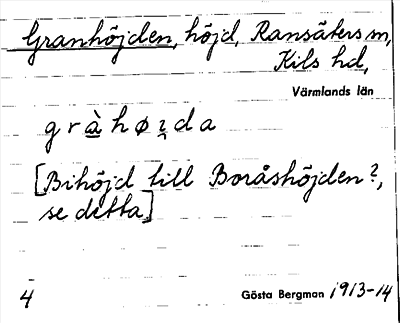 Granhöjden, höjd, Ransäters sn,
Kils hd,
Värmlands län
g r à h ø ʐ d a
[Bihöjd till Boråshöjden?,
se detta]
4
Gösta Bergman 1913-14